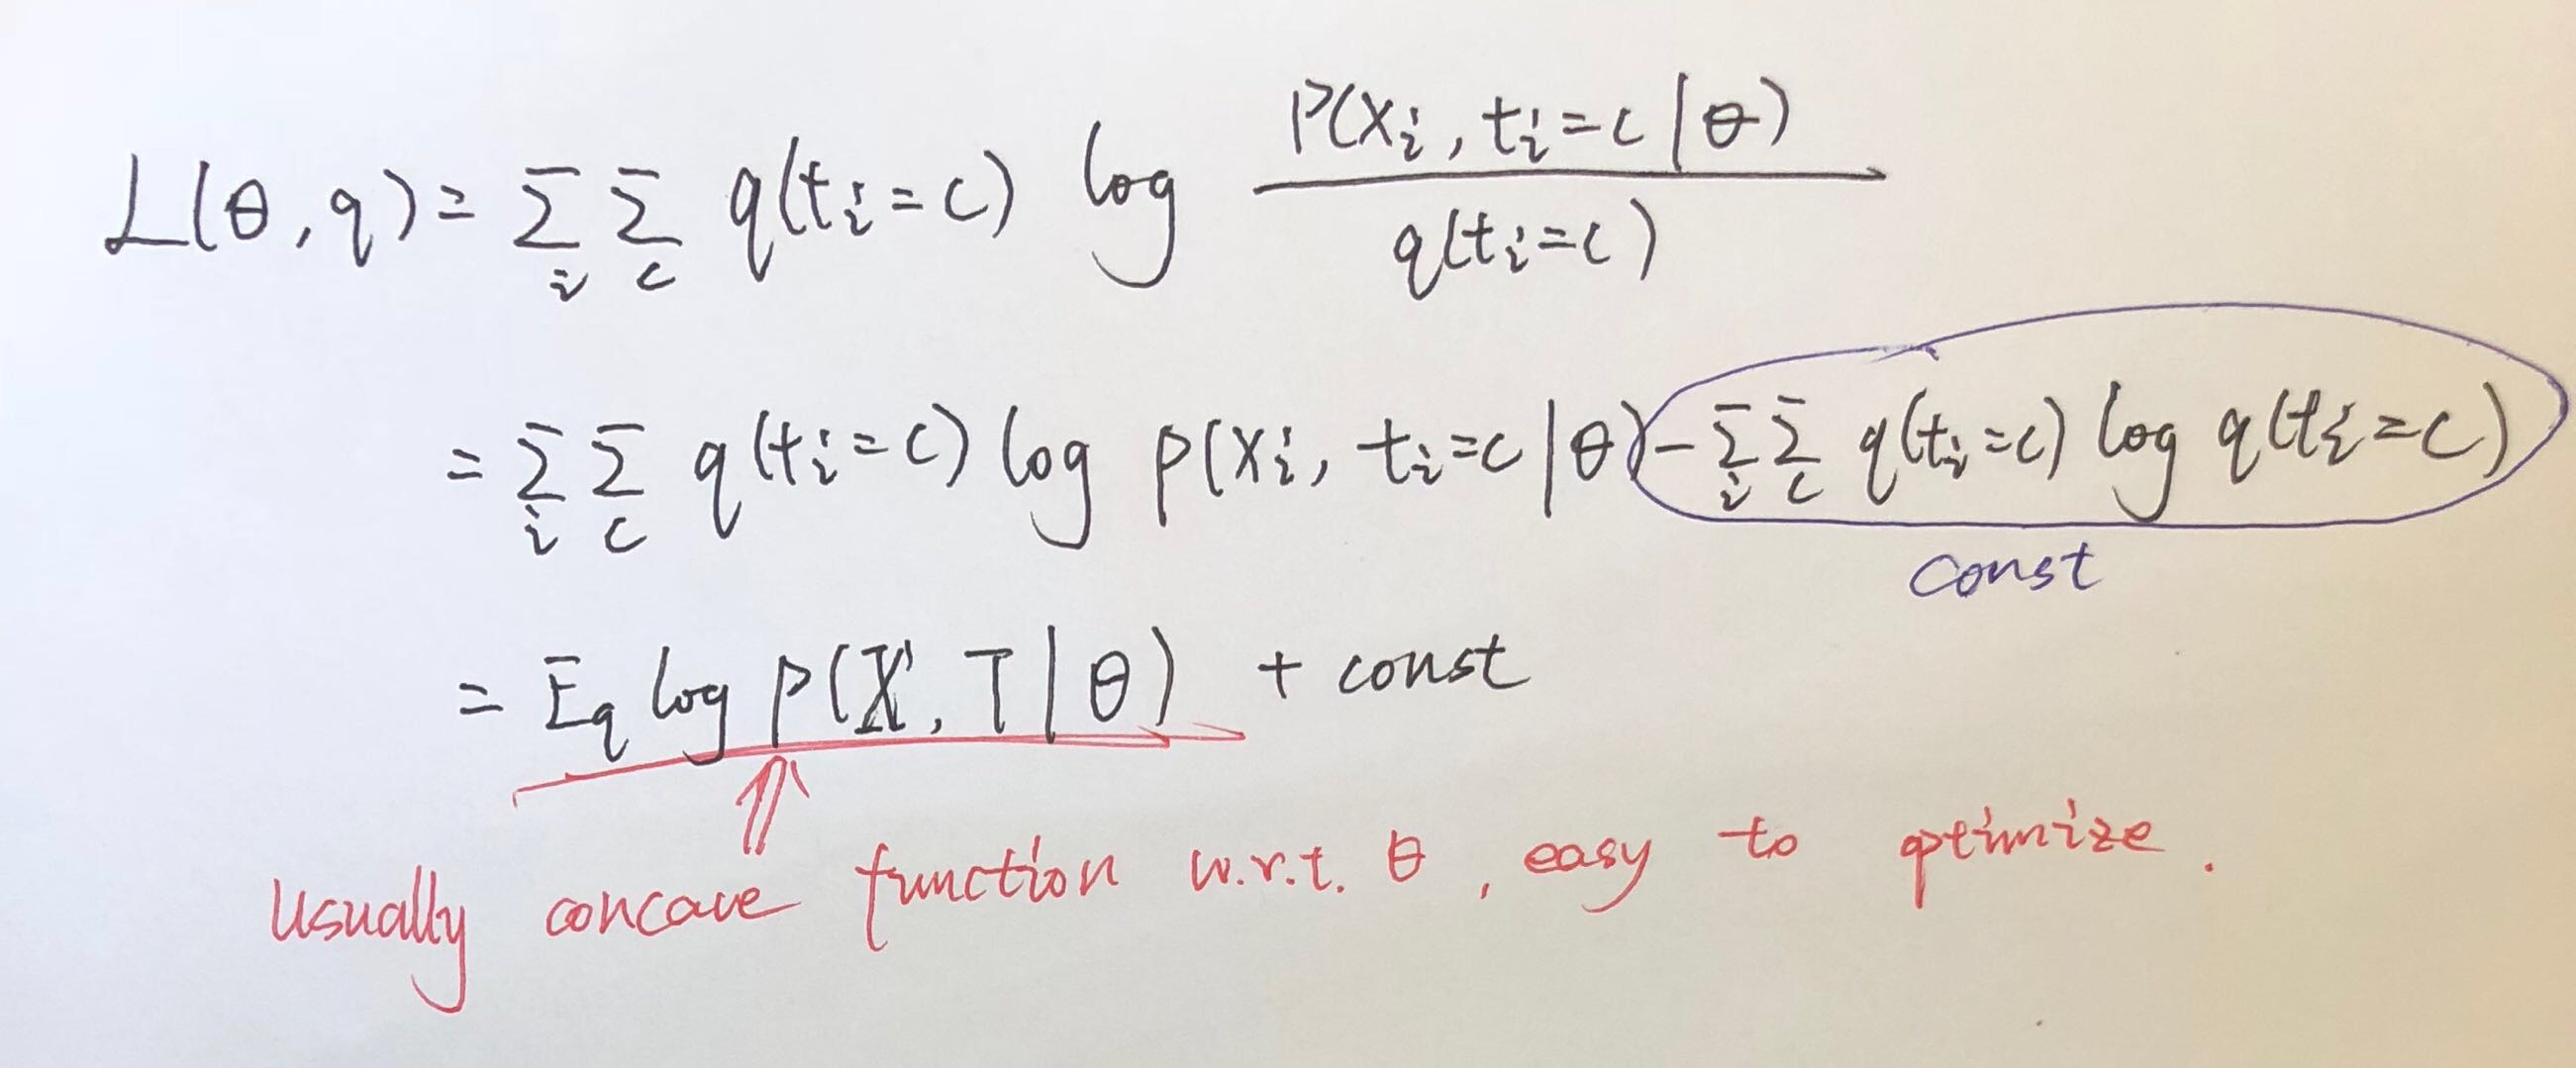 L(θ, q) = Σ_i Σ_c q(t_i = c) log P(x_i, t_i = c | θ) / q(t_i = c)
= Σ_i Σ_c q(t_i = c) log p(x_i, t_i = c | θ) - Σ_i Σ_c q(t_i = c) log q(t_i = c)
const
= E_q log p(X, T | θ) + const
Usually concave function w.r.t. θ, easy to optimize.